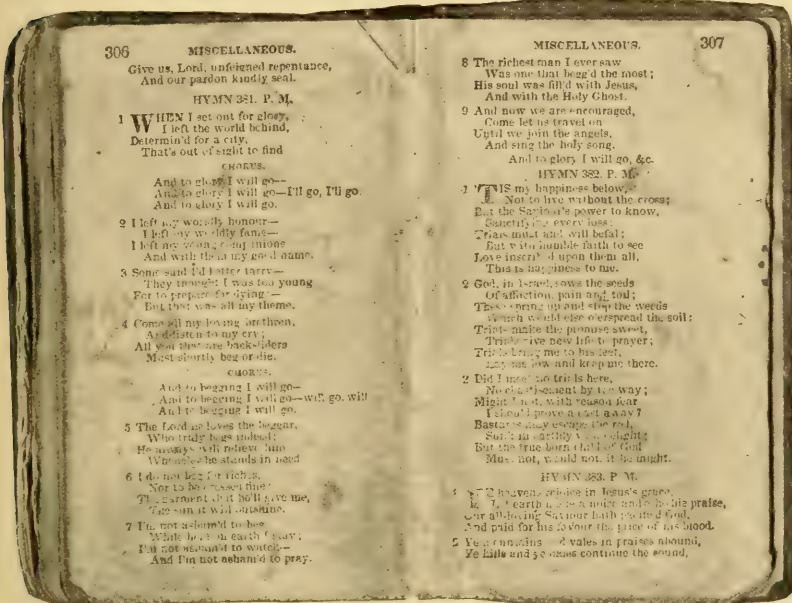 306 MISCELLANEOUS.
Give us, Lord, unfeigned repentance,
And our pardon kindly seal.
HYMN 381. P. M.
1 WHEN I set out for glory,
I left the world behind,
Determin'd for a city,
That's out of sight to find
CHORUS.
And to glory I will go—
And to glory I will go—I'll go, I'll go.
And to glory I will go.
2 I left my worldly honour—
I left my worldly fame—
I left my young companions
And with them my good name.
3 Some said I'd better tarry—
They thought I was too young
For to prepare for dying—
But that was all my theme.
4 Come all my loving brethren,
And listen to my cry;
All you that are backsliders
Must shortly beg or die.
CHORUS.
And to begging I will go—
And to begging I will go—will go, will
And to begging I will go.
5 The Lord he loves the beggar,
Who truly begs indeed;
He always will relieve him
Whene'er he stands in need
6 I do not beg for riches,
Nor to be dressed fine
The garment that he'll give me,
The sun it will outshine.
7 I'm not asham'd to beg
While here on earth I stay;
I'm not asham'd to watch—
And I'm not asham'd to pray.
MISCELLANEOUS. 307
8 The richest man I ever saw
Was one that begg'd the most;
His soul was fill'd with Jesus,
And with the Holy Ghost.
9 And now we are encouraged,
Come let us travel on
Until we join the angels,
And sing the holy song.
And to glory I will go, &c.
HYMN 382. P. M.
1 'TIS my happiness below,
Not to live without the cross;
But the Saviour's power to know,
Sanctifying every loss:
Trials must and will befal;
But with humble faith to see
Love inscrib'd upon them all,
This is happiness to me.
2 God, in Israel, sows the seeds
Of affliction, pain and toil;
These spring up and stop the weeds
Which would else o'erspread the soil:
Trials make the promise sweet,
Trials give new life to prayer;
Trials bring me to his feet,
Lay me low and keep me there.
2 Did I meet no trials here,
No chastisement by the way;
Might I not, with reason fear
I should prove a cast away?
Bastards may escape the rod,
Sunk in earthly vain delight;
But the true born child of God
Must not, would not, if he might.
HYMN 383. P. M.
heavens rejoice in Jesus's grace,
earth make a noise and echo his praise,
Our all-loving Saviour hath pacified God,
And paid for his favour the price of his blood.
2 Ye mountains and vales in praises abound,
Ye hills and ye dales continue the sound,